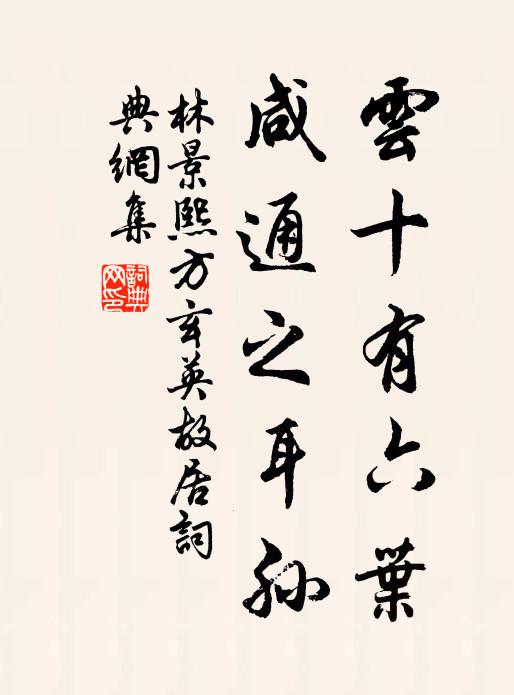 雲十有六葉
咸通之耳孫
林景熙方玄英故居詞
典網集
詞典網印